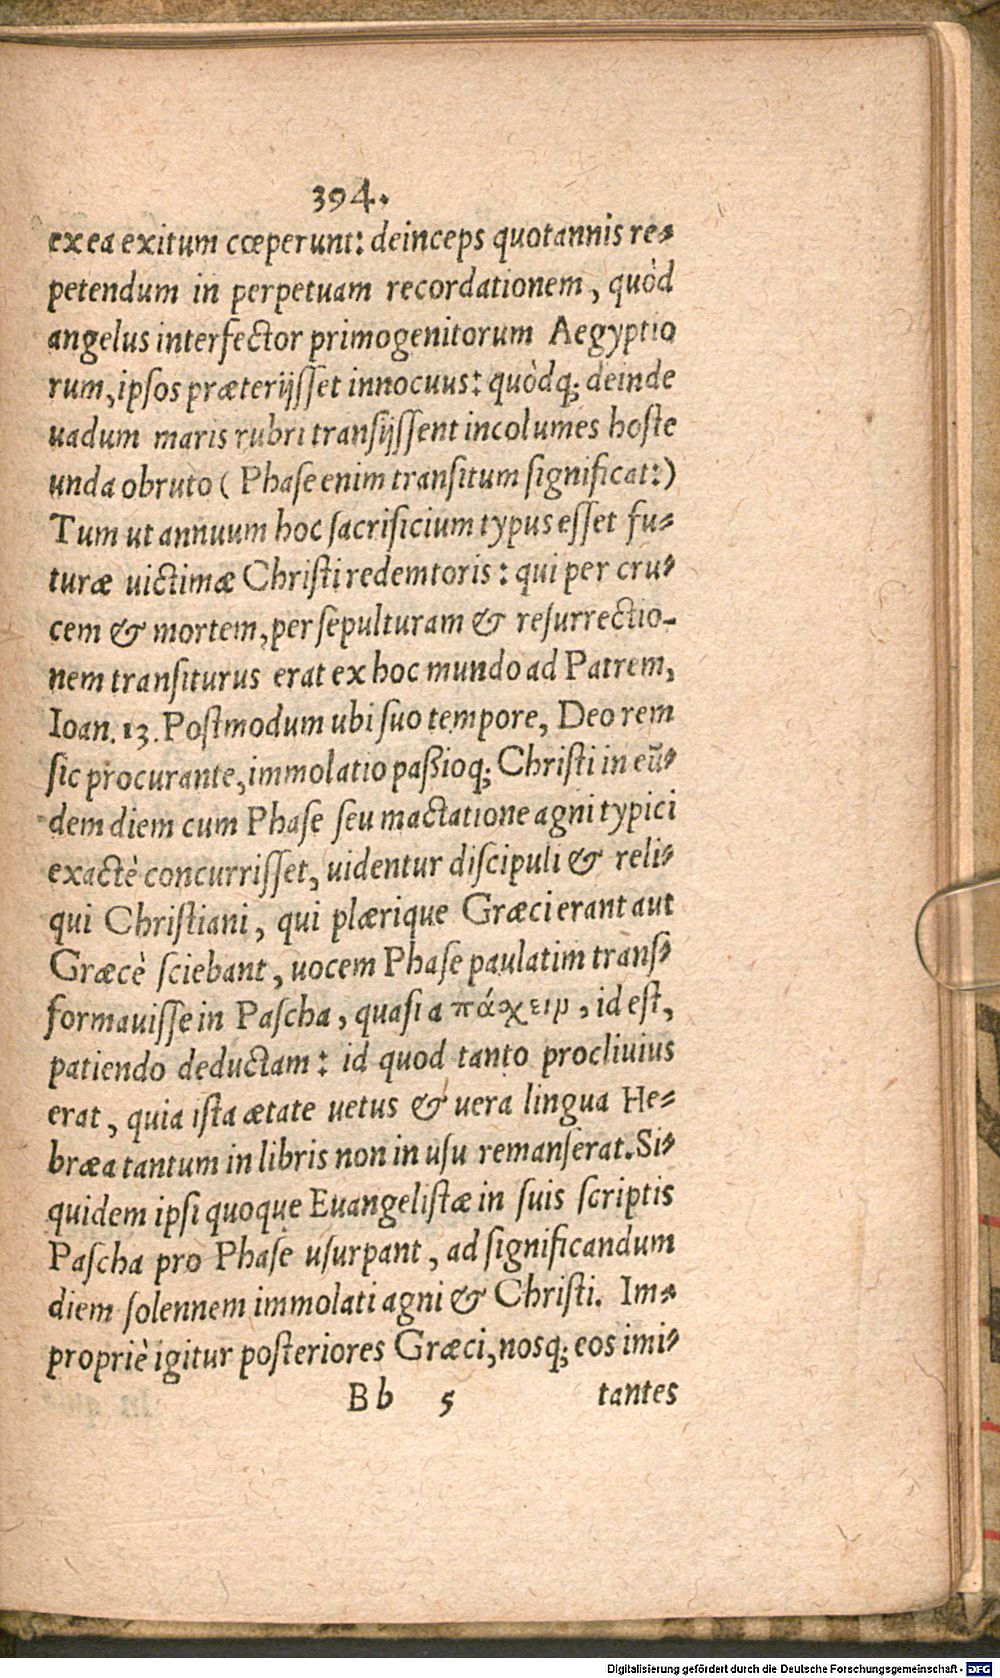 394.
ex ea exitum cœperunt: deinceps quotannis re-
petendum in perpetuam recordationem, quòd
angelus interfector primogenitorum Aegyptio
rum, ipsos præterijſſet innocuus: quòdq; deinde
uadum maris rubri tranſijſſent incolumes hoſte
unda obruto ( Phaſe enim tranſitum ſignificat:)
Tum ut annuum hoc ſacrificium typus eſſet fu-
turæ uictimæ Chriſti redemtoris: qui per cru-
cem & mortem, per ſepulturam & reſurrectio-
nem tranſiturus erat ex hoc mundo ad Patrem,
Ioan. 13. Poſtmodum ubi ſuo tempore, Deo rem
ſic procurante, immolatio paßioq; Chriſti in eū-
dem diem cum Phaſe ſeu mactatione agni typici
exactè concurriſſet, uidentur diſcipuli & reli-
qui Chriſtiani, qui plærique Græci erant aut
Græcè ſciebant, uocem Phaſe paulatim transſ-
formauiſſe in Paſcha, quaſi a πάχειρ, id eſt,
patiendo deductam: id quod tanto procliuius
erat, quia iſta ætate uetus & uera lingua He-
bræa tantum in libris non in uſu remanſerat. Si-
quidem ipſi quoque Euangeliſtæ in ſuis ſcriptis
Paſcha pro Phaſe uſurpant, ad ſignificandum
diem ſolennem immolati agni & Chriſti. Im-
propriè igitur poſteriores Græci, nosq; eos imi-
Bb 5 tantes
Digitalisierung gefördert durch die Deutsche Forschungsgemeinschaft - DFG